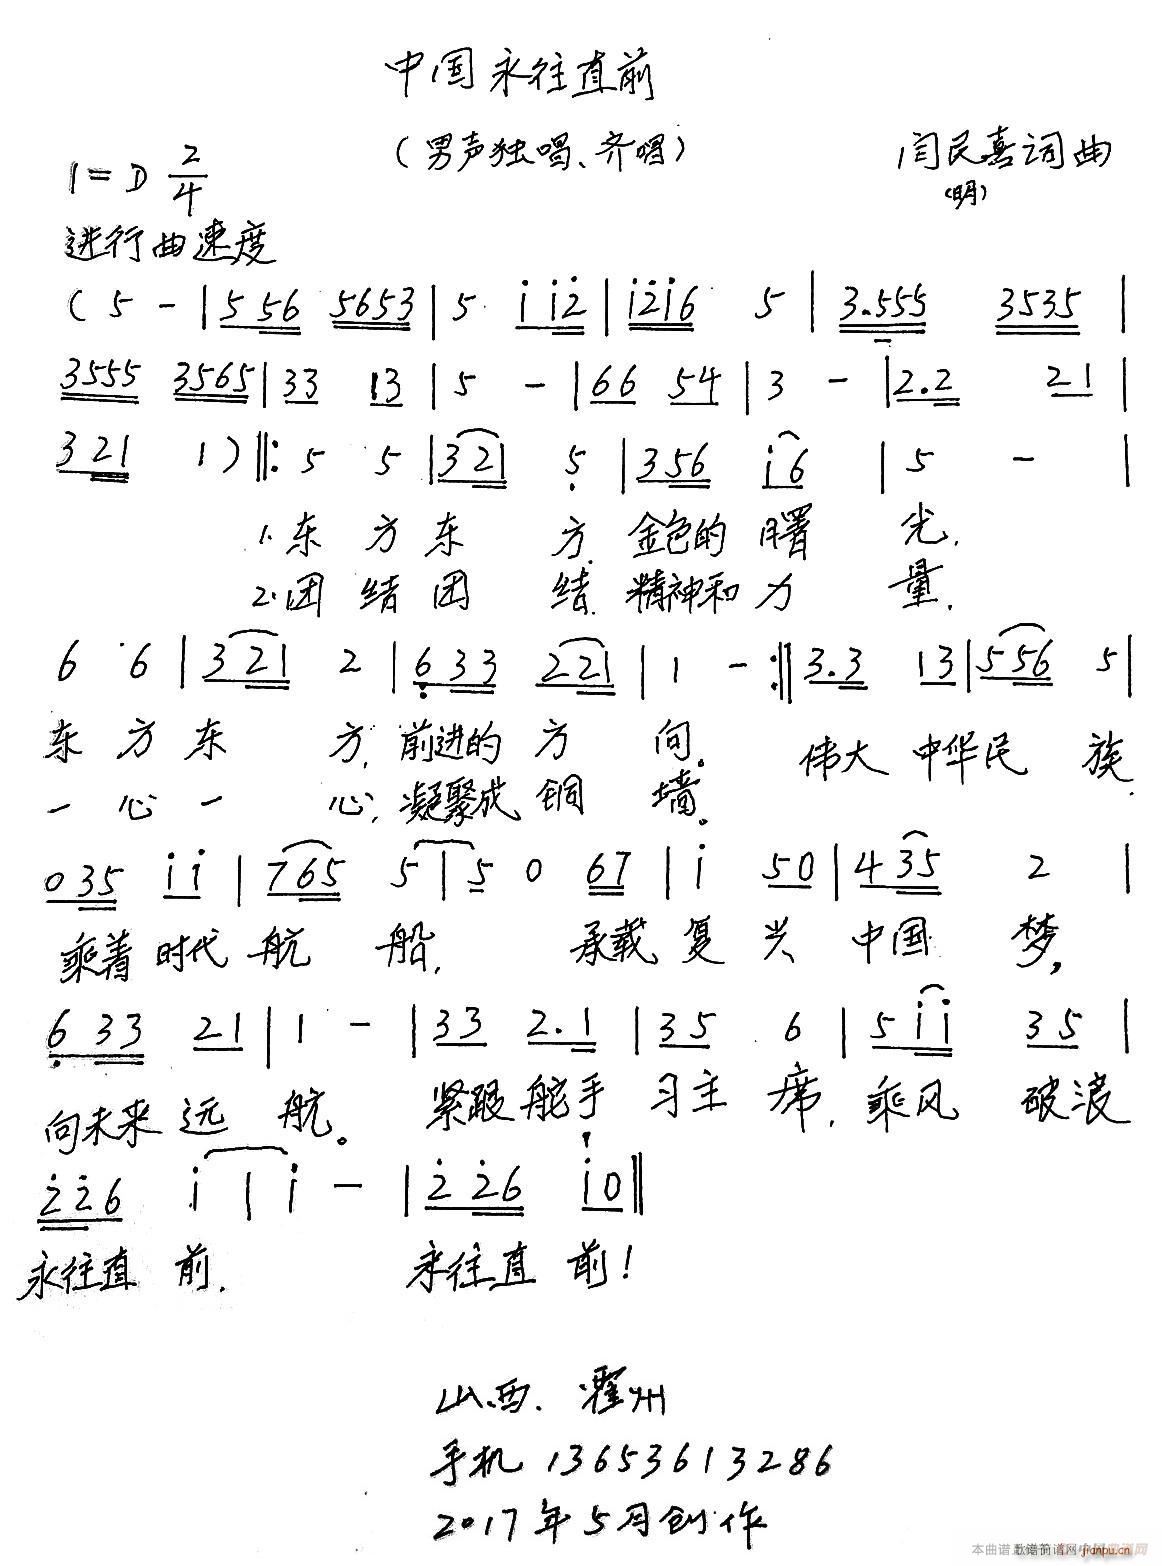 中国永往直前
(男声独唱、齐唱)
闫民喜词曲
(明)
1=D 2/4
进行曲速度
( 5 - | 5 56 5653 | 5 i i2 | i2i6 5 | 3.555 3535 |
3555 3565 | 33 13 | 5 - | 66 54 | 3 - | 2.2 21 |
3 21 1 ) ‖: 5 5 | 3 21 5 | 3 56 i6 | 5 - |
1.东方东方.金色的曙光.
2.团结团结.精神和力量.
6 6 | 3 21 2 | 6 33 2 21 | 1 - :‖ 3.3 13 | 5 56 5 |
东方东方,前进的方向。 伟大中华民族.
一心一心,凝聚成铜墙。
0 35 i i | 7 65 5 | 5 0 67 | i 50 | 4 35 2 |
乘着时代航船, 承载复兴中国梦,
6 33 21 | 1 - | 33 2.1 | 35 6 | 5 i i 35 |
向未来远航。 紧跟舵手习主席,乘风破浪
2 2 6 i | i - | 2 26 i0 ‖
永往直前. 永往直前!
山西.霍州
手机 13653613286
2017年5月创作
jianpu.cn